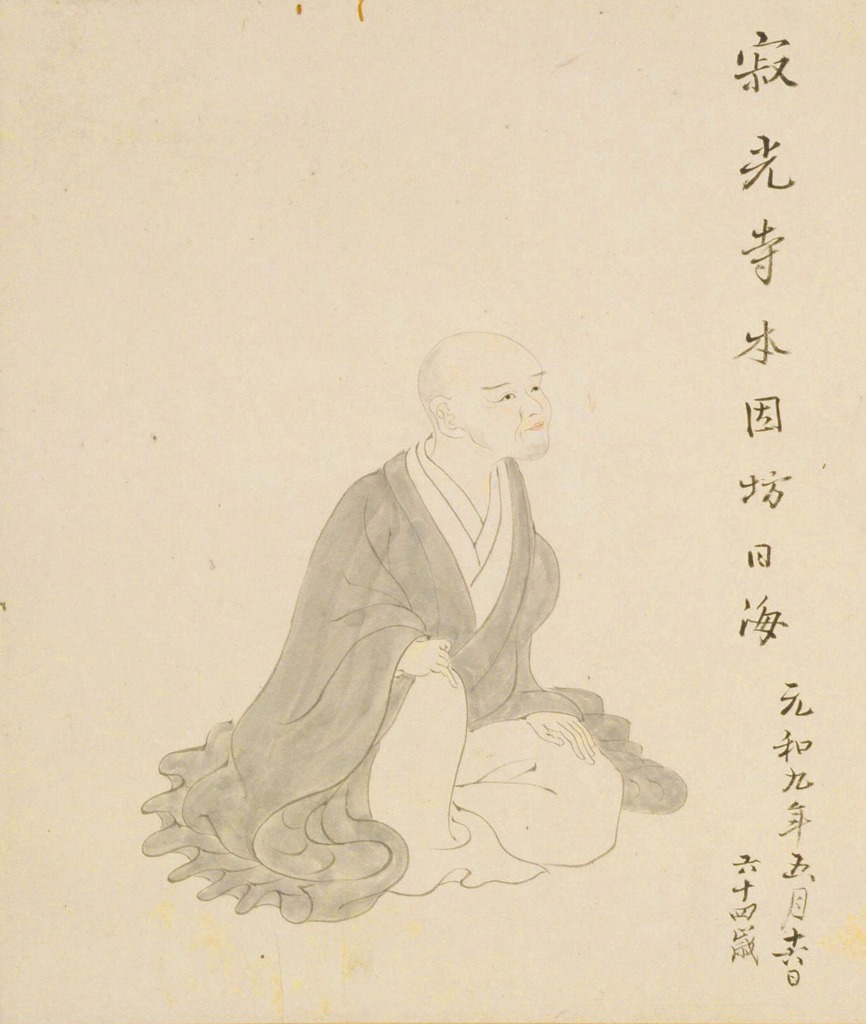 寂光寺本因坊日海
元和九年五月十六日
六十四歳